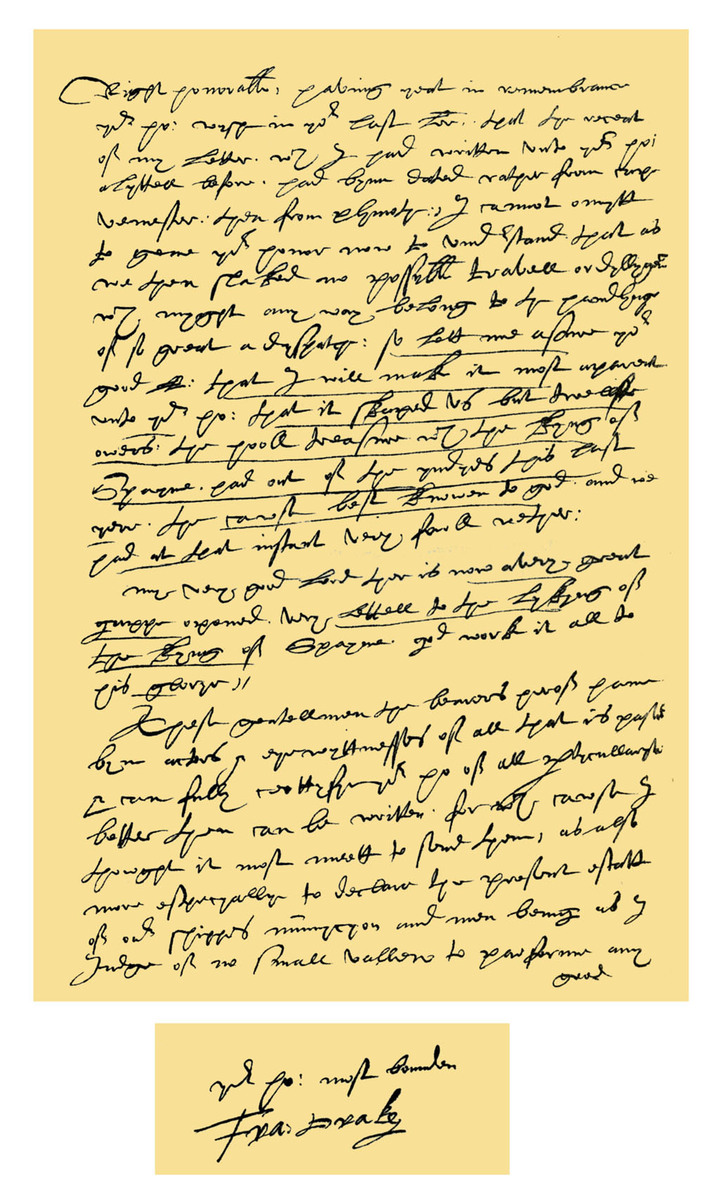 Right honorable, having yeat in remembrance
yor ho: wysh in yor last Ler. that the receat
of my Letter. wch I had written unto yor ho:
alyttell before. had byne dated rather from
vemester: then from plymoth:, I cannot omytt
to geve yor honor now to understand. that as
we then slaked no possyble travell or dyllygence
wch myght any way belong to the handlynge
of so great a dyspatch: so lett me assure yor
good : that I will make it most aparent
unto yor ho: that it skaped us but twellffe
owers. the holl treasure wch the kyng of
Spayne. had out of the yndyes this last
yere. the cawse best knowen to god. and we
had at that instant very fowll wether:
my very good Lord ther is now a very great
gappe opened. very lettell to the lykyng of
the kyng of Spayne. god work it all to
his glorye //
Thest gentellmen the bearers herof have
byn actors & eyewyttnesses of all that is past
& can fully certtyfye yor ho of all pertycullarytes
better then can be written. for wch cawse I
thowght it most meett to send them, as also
more espetyally to declare the present estatt
of our shippes munycyon and men being as I
Judge of no small vallew to parforme any
good
yor ho: most bounden
Fra: Drake